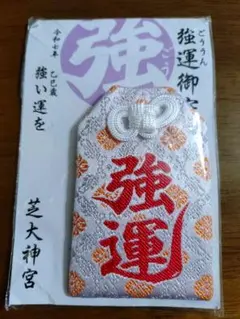 ごううん
強運御守
強
令和七年 乙巳歳
強い運を
芝大神宮
強運